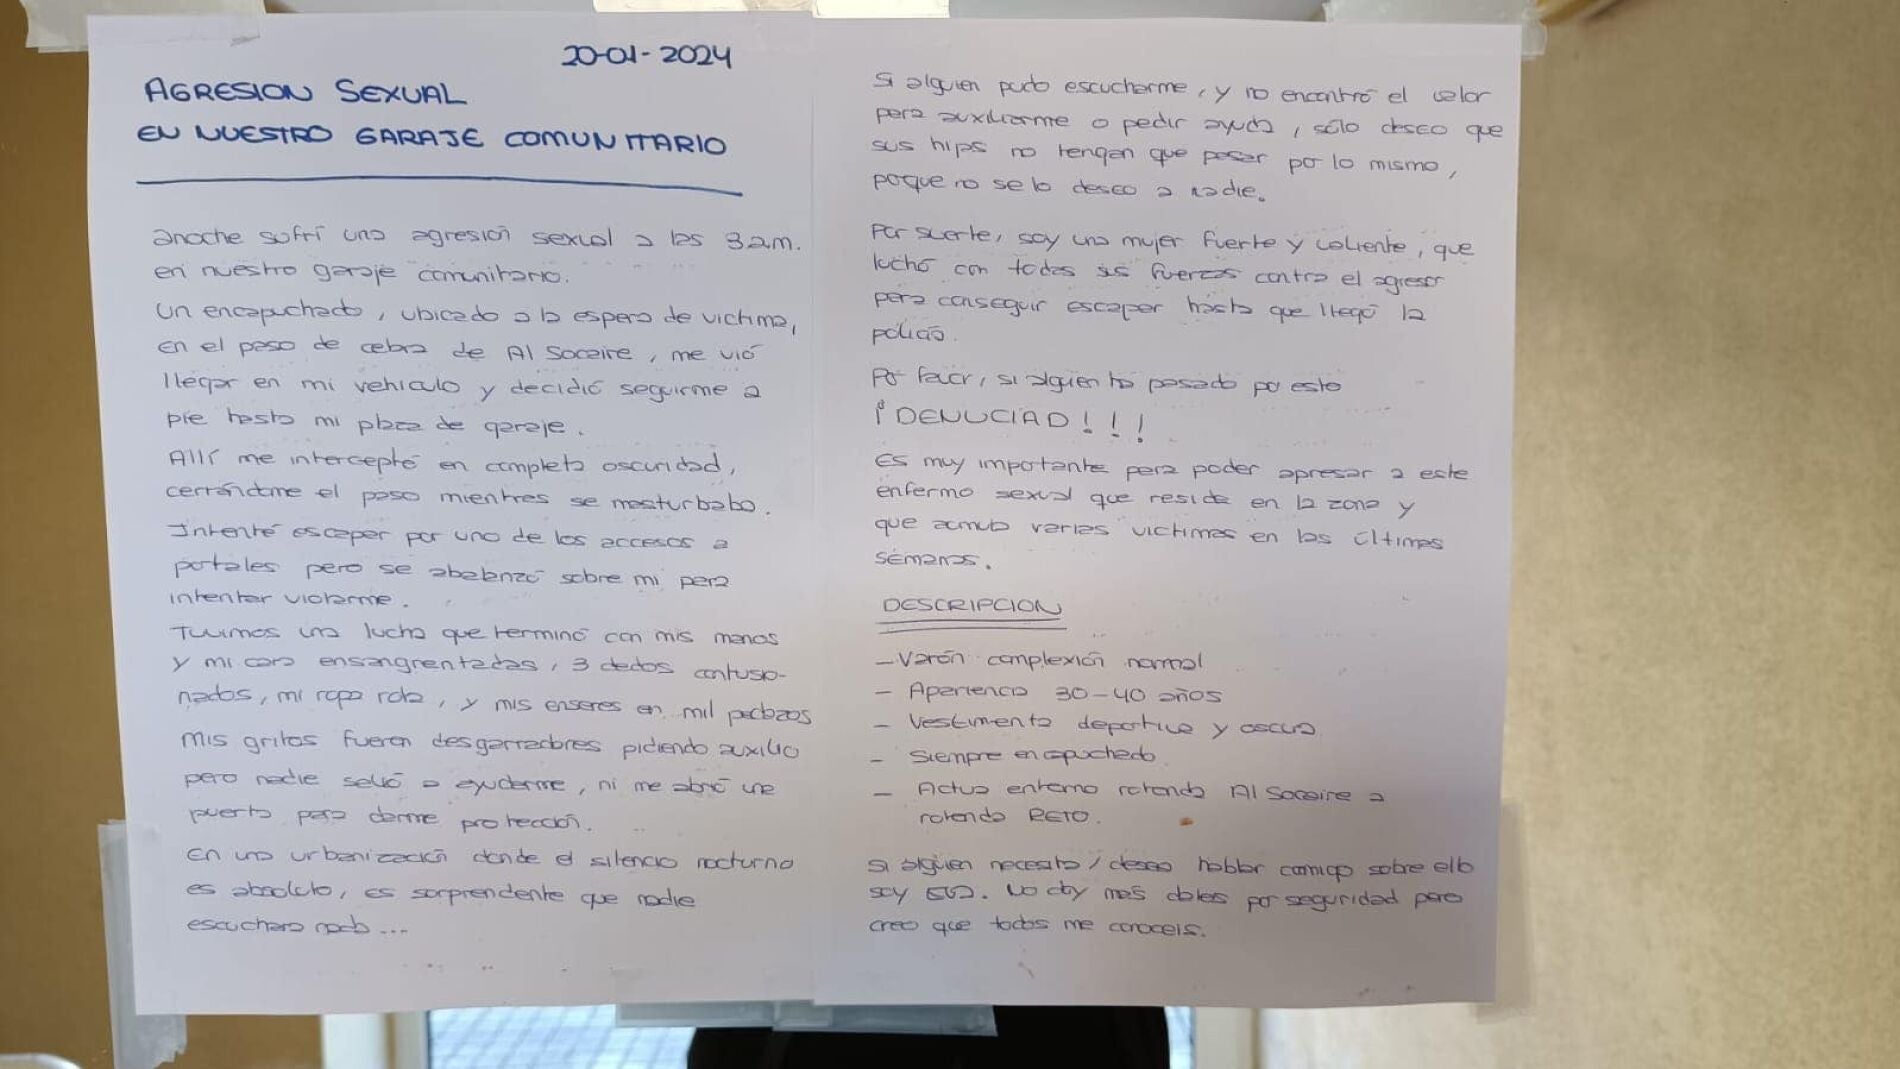 20-01-2024
AGRESION SEXUAL
EN NUESTRO GARAJE COMUNITARIO
anoche sufrí una agresión sexual a las 3 a.m.
en nuestro garaje comunitario.
Un encapuchado, ubicado a la espera de victima,
en el paso de cebra de Al Socaire, me vió
llegar en mi vehiculo y decidió seguirme a
pie hasta mi plaza de garaje.
Allí me interceptó en completa oscuridad,
cerrándome el paso mientras se masturbaba.
Intenté escapar por uno de los accesos a
portales pero se abalanzó sobre mi para
intentar violarme.
Tuvimos una lucha que terminó con mis manos
y mi cara ensangrentadas, 3 dedos contusio-
nados, mi ropa rota, y mis enseres en mil pedazos
Mis gritos fueron desgarradores pidiendo auxilio
pero nadie salió a ayudarme, ni me abrió una
puerta para darme protección.
En una urbanización donde el silencio nocturno
es absoluto, es sorprendente que nadie
escuchara nada...
Si alguien pudo escucharme, y no encontró el valor
para auxiliarme o pedir ayuda, sólo deseo que
sus hijos no tengan que pasar por lo mismo,
porque no se lo deseo a nadie.
Por suerte, soy una mujer fuerte y valiente, que
luchó con todas sus fuerzas contra el agresor
para conseguir escapar hasta que llegó la
policía.
Por favor, si alguien ha pasado por esto
¡DENUCIAD!!!
Es muy importante para poder apresar a este
enfermo sexual que reside en la zona y
que acumula varias victimas en las últimas
semanas.
DESCRIPCION
- Varón complexión normal
- Apariencia 30-40 años
- Vestimenta deportiva y oscura
- Siempre encapuchado.
- Actua entorno rotonda Al Socaire a
rotonda RETO.
Si alguien necesita/desea hablar conmigo sobre ello
soy Eva. No doy más datos por seguridad pero
creo que todos me conoceis.